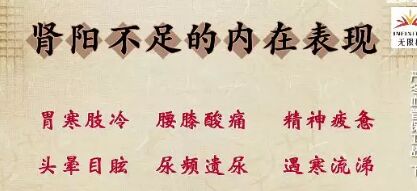 肾阳不足的内在表现
胃寒肢冷 腰膝酸痛 精神疲惫
头晕目眩 尿频遗尿 遇寒流涕